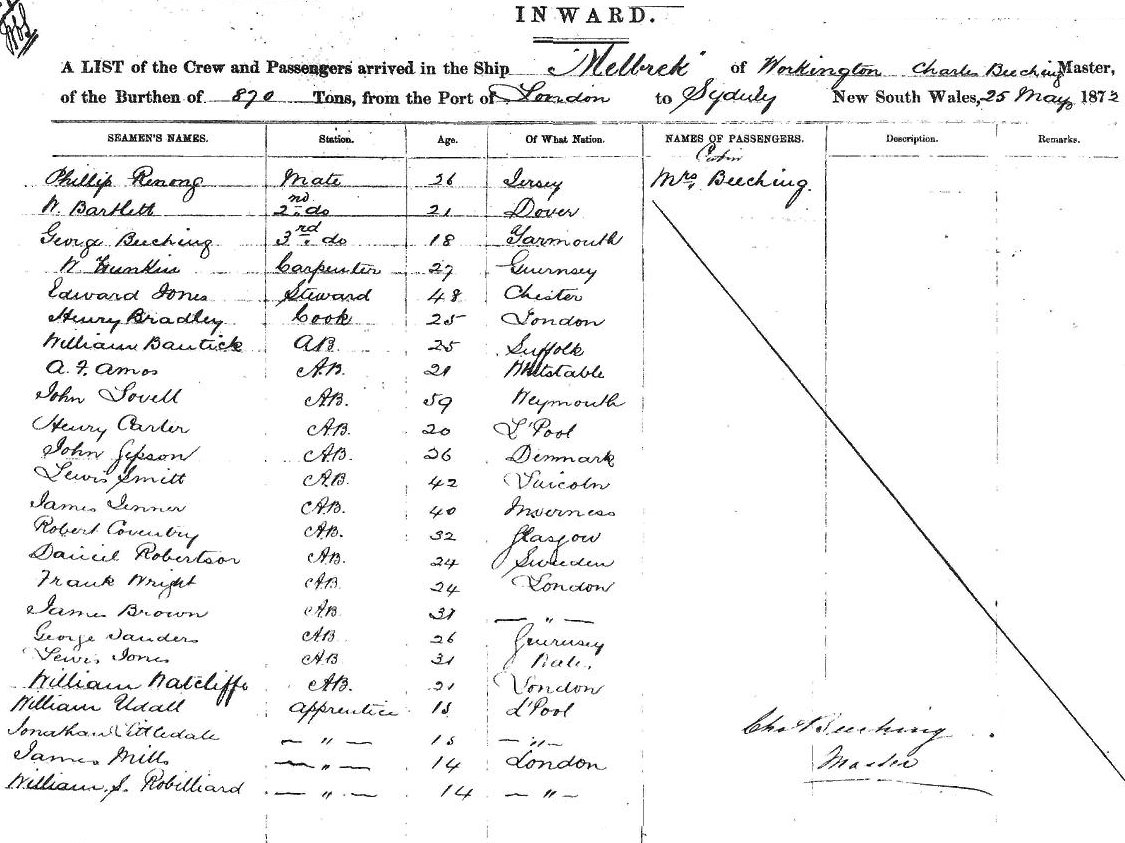 INWARD.
A LIST of the Crew and Passengers arrived in the Ship "Melbrek" of Workington Charles Beeching Master,
of the Burthen of 870 Tons, from the Port of London to Sydney New South Wales, 25 May 1873
SEAMEN'S NAMES. Station. Age. Of What Nation. NAMES OF PASSENGERS. Description. Remarks.
Cabin
Phillip Renong Mate 26 Jersey Mrs Beeching.
W. Bartlett 2nd do 21 Dover
George Beeching 3rd do 18 Yarmouth
W Hunkin Carpenter 27 Guernsey
Edward Jones Steward 48 Chester
Henry Bradley Cook 25 London
William Bantick AB. 25 Suffolk
A. F. Amos AB. 21 Whitstable
John Lovell AB. 59 Weymouth
Henry Carter AB. 20 L'Pool
John Jepson AB. 26 Denmark
Lewis Smitt AB. 42 Lincoln
James Jenner AB. 40 Inverness
Robert Coventry AB. 32 Glasgow
Daniel Robertson AB. 24 Sweden
Frank Wright AB. 24 London
James Brown AB. 31 — " —
George Sanders AB. 26 Guernsey
Lewis Jones AB 31
William Natcliffe AB. 21 London
William Udall Apprentice 15 L'Pool
Jonathan Littledale — " — 15 — " —
James Mills — " — 14 London
William S. Robilliard — " — 14 — " —
Chas Beeching
Master